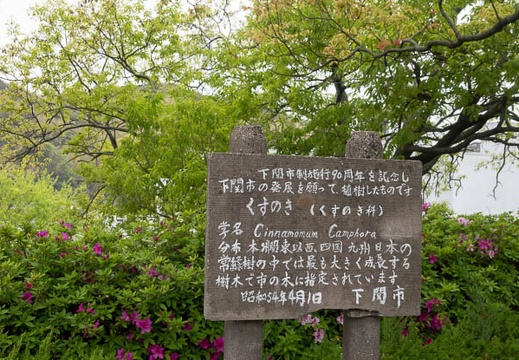 下関市制施行90周年を記念し
下関市の発展を願って、植樹したものです
くすのき (くすのき科)
学名 Cinnamomum Camphora
分布 本州関東以西、四国 九州 日本の
常緑樹の中では最も大きく成長する
樹木で市の木に指定されています
昭和54年4月1日 下関市